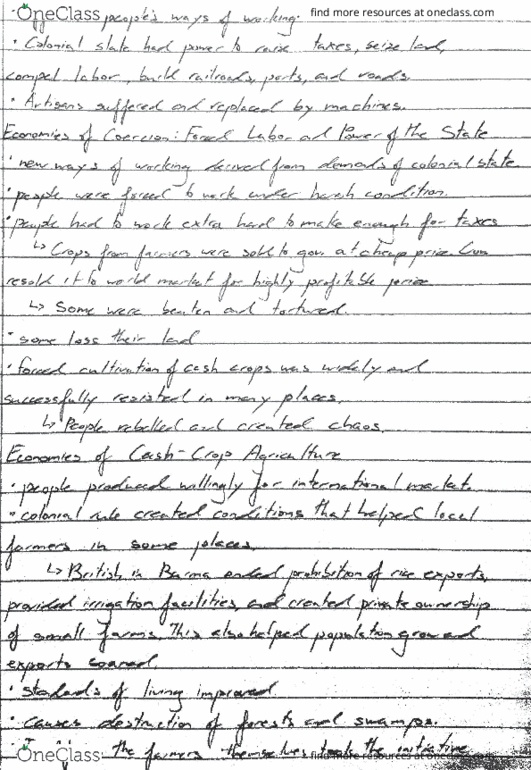 OneClass people's ways of working. find more resources at oneclass.com
• Colonial state had power to raise taxes, seize land,
compel labor, build railroads, ports, and roads.
• Artisans suffered and replaced by machines.
Economies of Coercion: Forced Labor and Power of the State
• new ways of working derived from demands of colonial state
• people were forced to work under harsh condition.
• people had to work extra hard to make enough for taxes
↳ Crops from farmers were sold to gov at cheap prize
resold it to world market for highly profitable prize
↳ Some were beaten and tortured.
• some loss their land
• forced cultivation of cash crops was widely and
successfully resisted in many places.
↳ People rebelled and created chaos.
Economies of Cash-Crop Agriculture
• people produced willingly for international market.
• colonial rule created conditions that helped local
farmers in some places.
↳ British in Burma ended prohibition of rice exports,
provided irrigation facilities, and created private ownership
of small farms. This also helped population grow and
exports soared.
• standards of living improved
• causes destruction of forests and swamps.
OneClass the farmers themselves took the initiative find more resources at oneclass.com